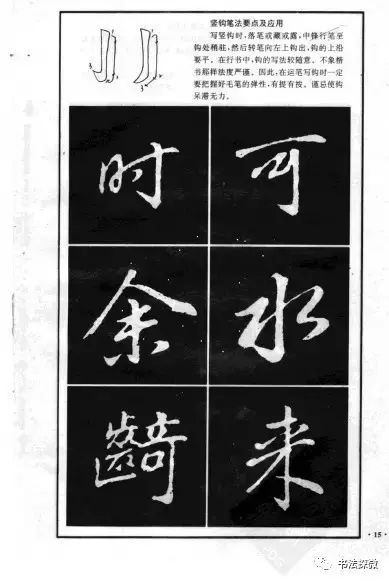 竖钩笔法要点及应用
写竖钩时,落笔或藏或露,中锋行笔至
钩处稍驻,然后转笔向左上钩出,钩的上沿
要平。在行书中,钩的写法较随意。不象楷
书那样法度严谨。因此,在运笔写钩时一定
要把握好毛笔的弹性,有提有按。谨忌使钩
呆滞无力。
时 可
余 水
齮 来
·15·
书法探教